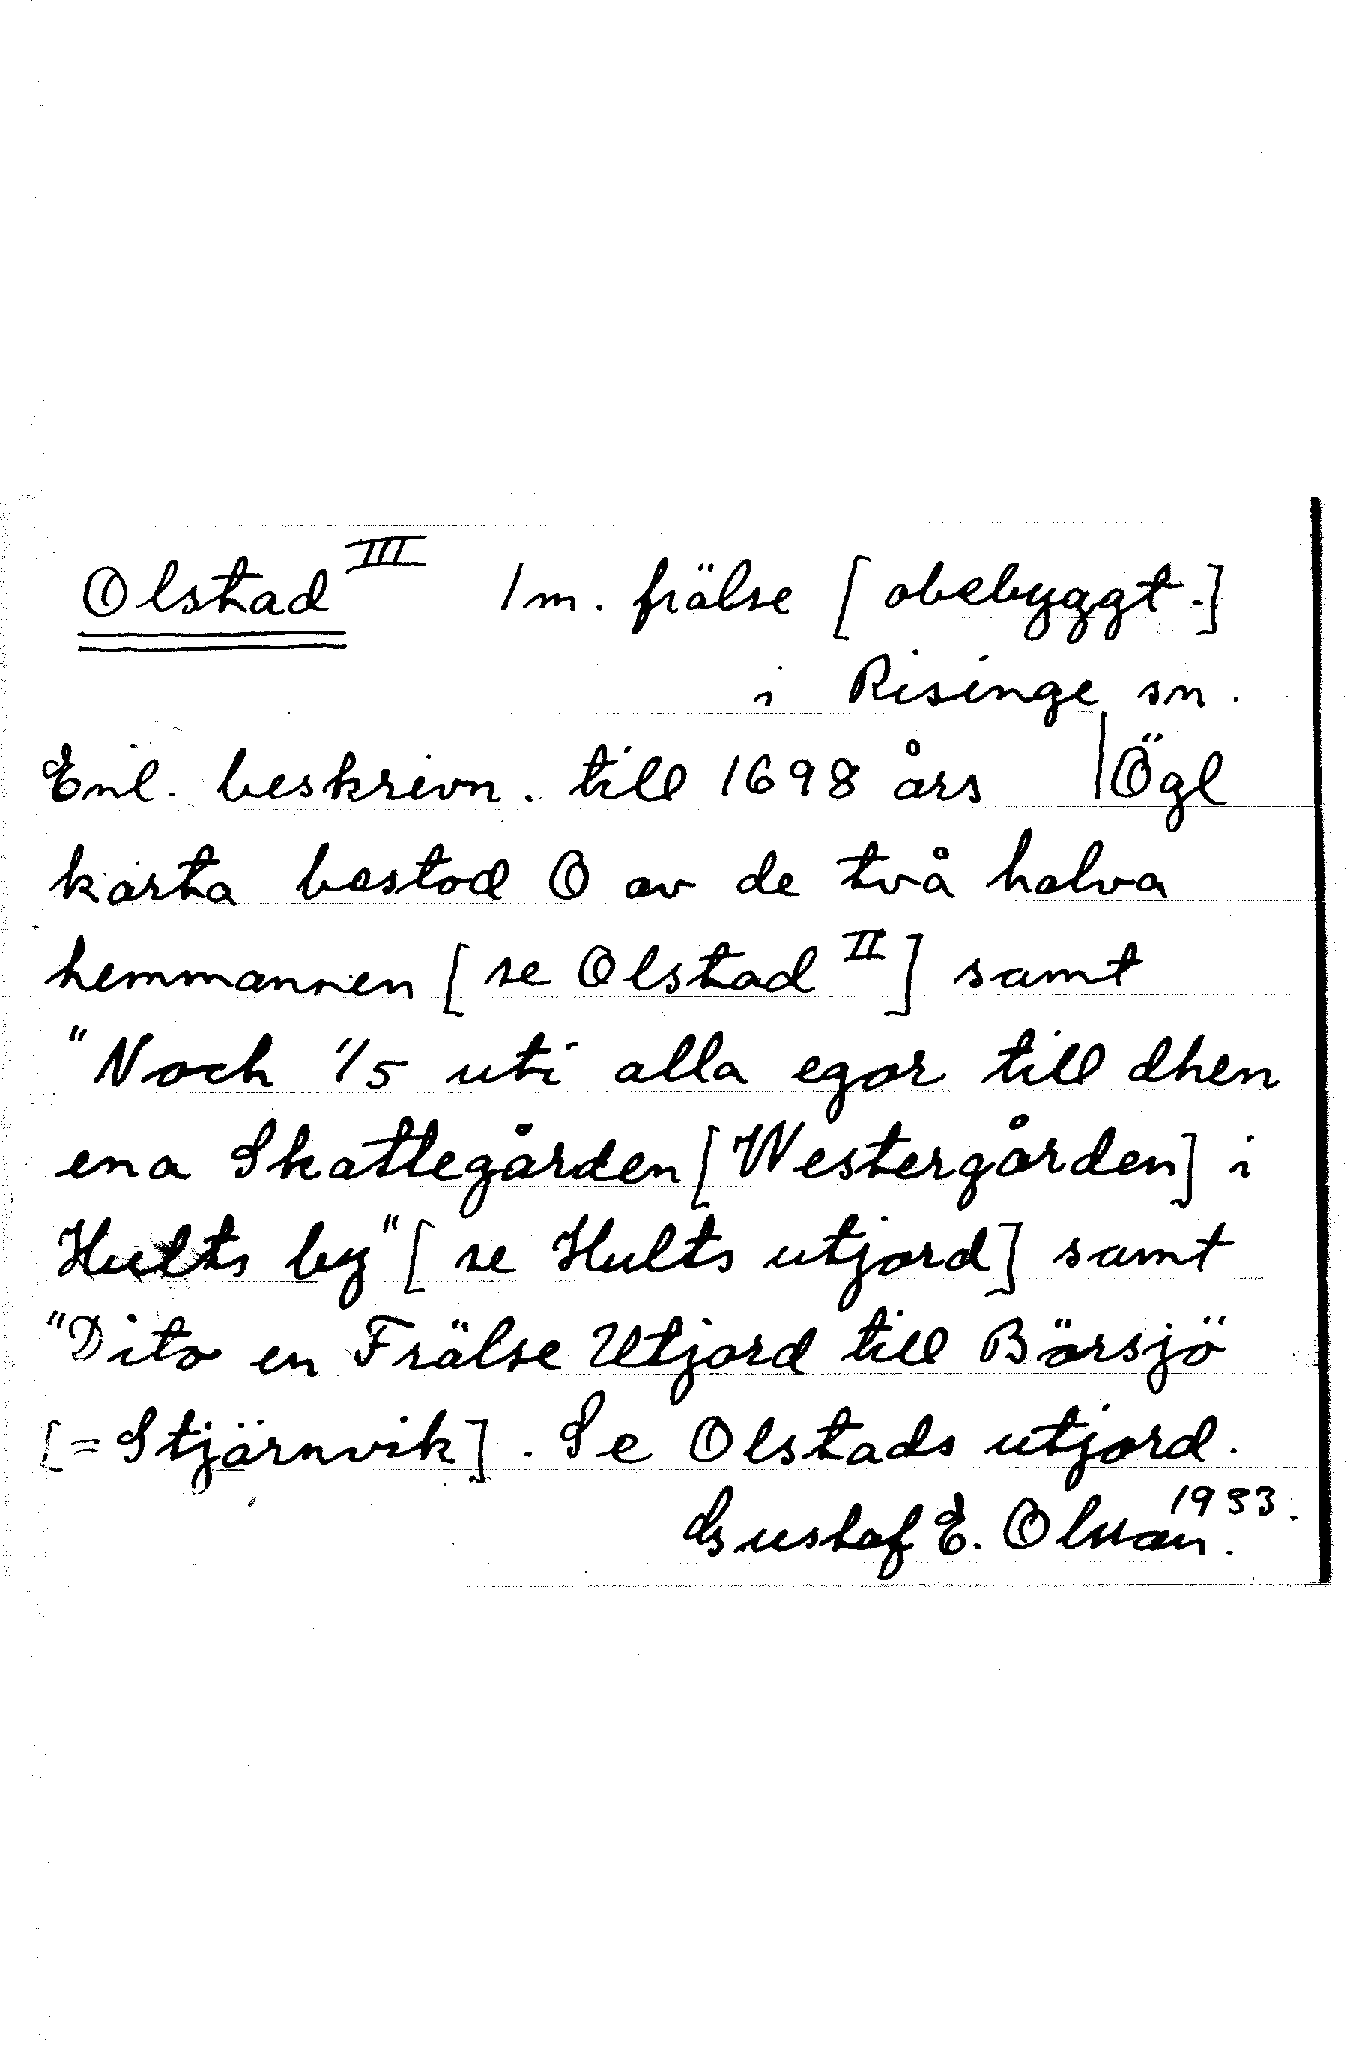 Olstad III 1 m. frälse [obebyggt.]
i Risinge sn.
Enl. beskrivn. till 1698 års |Ögl
karta bestod O av de två halva
hemmannen [se Olstad II] samt
"Noch 1/5 uti alla egor till dhen
ena Skattegården [Westergården] i
Hults by" [se Hults utjord] samt
"Dito en Frälse Utjord till Börsjö
[=Stjärnvik]. Se Olstads utjord.
Gustaf E. Olsson. 1933.